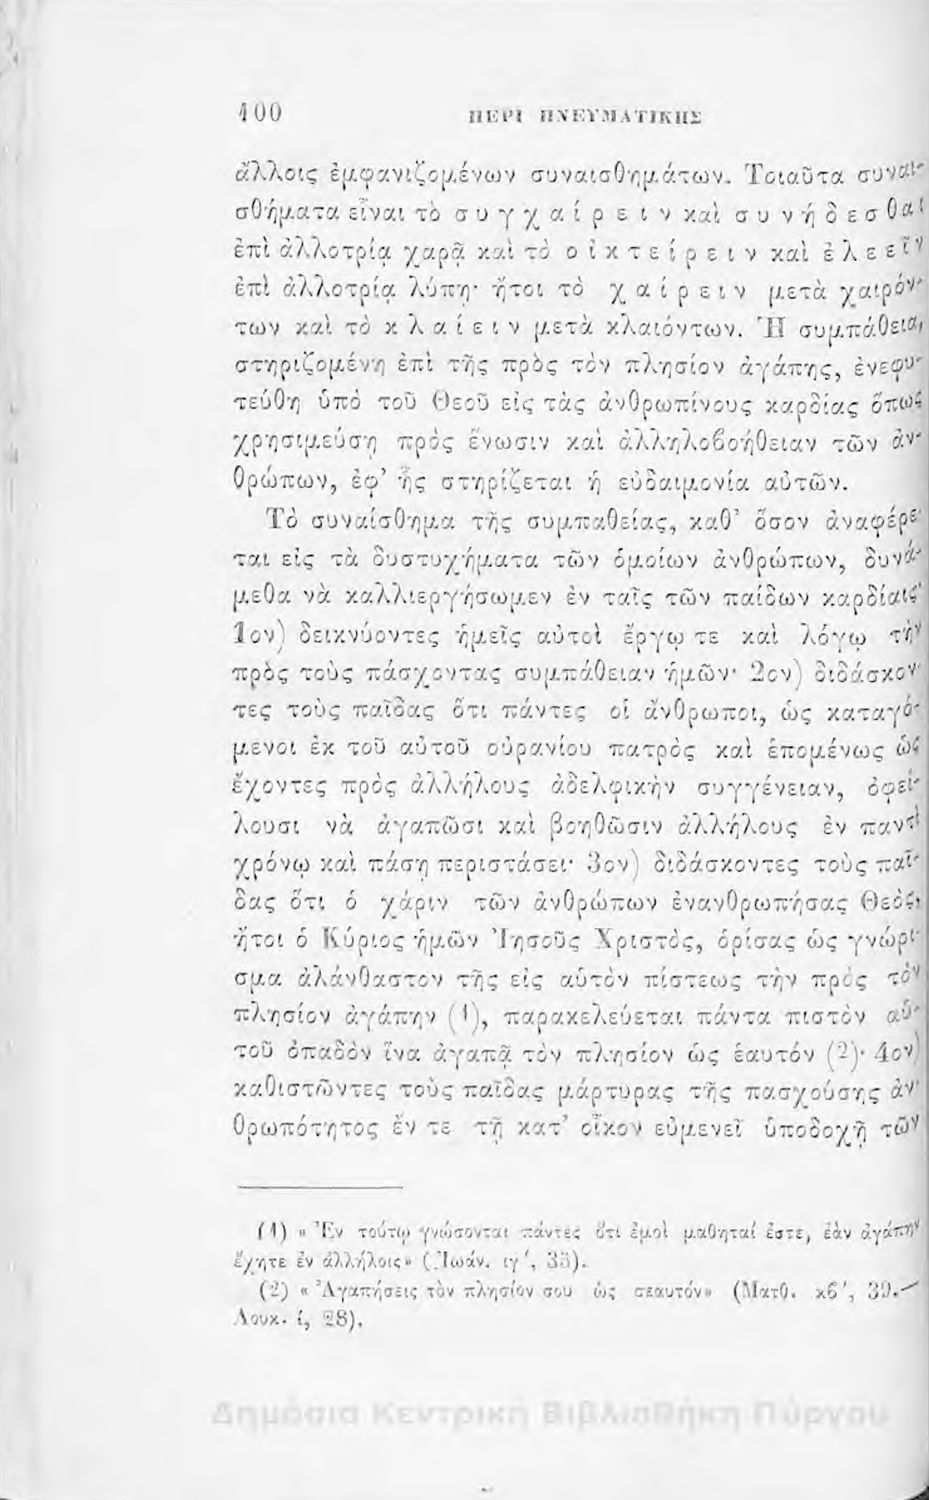 100 ΠΕΡΙ ΠΝΕΥΜΑΤΙΚΗΣ
ἄλλοις ἐμφανιζομένων συναισθημάτων. Τοιαῦτα συναι-
σθήματα εἶναι τὸ συγχαίρειν καὶ συνήδεσθαι
ἐπὶ ἀλλοτρίᾳ χαρᾷ καὶ τὸ οἰκτείρειν καὶ ἐλεεῖν
ἐπὶ ἀλλοτρίᾳ λύπῃ· ἤτοι τὸ χαίρειν μετὰ χαιρόν-
των καὶ τὸ κλαίειν μετὰ κλαιόντων. Ἡ συμπάθεια,
στηριζομένη ἐπὶ τῆς πρὸς τὸν πλησίον ἀγάπης, ἐνεφυ-
τεύθη ὑπὸ τοῦ Θεοῦ εἰς τὰς ἀνθρωπίνους καρδίας ὅπως
χρησιμεύσῃ πρὸς ἕνωσιν καὶ ἀλληλοβοήθειαν τῶν ἀν-
θρώπων, ἐφ’ ἧς στηρίζεται ἡ εὐδαιμονία αὐτῶν.
Τὸ συναίσθημα τῆς συμπαθείας, καθ’ ὅσον ἀναφέρε-
ται εἰς τὰ δυστυχήματα τῶν ὁμοίων ἀνθρώπων, δυνά-
μεθα νὰ καλλιεργήσωμεν ἐν ταῖς τῶν παίδων καρδίαις
1ον) δεικνύοντες ἡμεῖς αὐτοὶ ἔργῳ τε καὶ λόγῳ τὴν
πρὸς τοὺς πάσχοντας συμπάθειαν ἡμῶν· 2ον) διδάσκον-
τες τοὺς παῖδας ὅτι πάντες οἱ ἄνθρωποι, ὡς καταγό-
μενοι ἐκ τοῦ αὐτοῦ οὐρανίου πατρὸς καὶ ἑπομένως ὡς
ἔχοντες πρὸς ἀλλήλους ἀδελφικὴν συγγένειαν, ὀφεί-
λουσι νὰ ἀγαπῶσι καὶ βοηθῶσιν ἀλλήλους ἐν παντὶ
χρόνῳ καὶ πάσῃ περιστάσει· 3ον) διδάσκοντες τοὺς παῖ-
δας ὅτι ὁ χάριν τῶν ἀνθρώπων ἐνανθρωπήσας Θεὸς,
ἤτοι ὁ Κύριος ἡμῶν Ἰησοῦς Χριστὸς, ὁρίσας ὡς γνώρι-
σμα ἀλάνθαστον τῆς εἰς αὐτὸν πίστεως τὴν πρὸς τὸν
πλησίον ἀγάπην (1), παρακελεύεται πάντα πιστὸν αὐ-
τοῦ ὀπαδὸν ἵνα ἀγαπᾷ τὸν πλησίον ὡς ἑαυτόν (2)· 4ον)
καθιστῶντες τοὺς παῖδας μάρτυρας τῆς πασχούσης ἀν-
θρωπότητος ἔν τε τῇ κατ’ οἶκον εὐμενεῖ ὑποδοχῇ τῶν
(1) « Ἐν τούτῳ γνώσονται πάντες ὅτι ἐμοὶ μαθηταί ἐστε, ἐὰν ἀγάπην
ἔχητε ἐν ἀλλήλοις» (Ἰωάν. ιγ΄, 35).
(2) « Ἀγαπήσεις τὸν πλησίον σου ὡς σεαυτόν» (Ματθ. κβ΄, 39.—
Λουκ. ί, 28).
Δημόσια Κεντρική Βιβλιοθήκη Πύργου